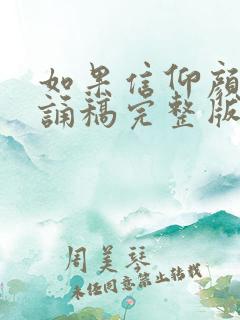 如果信仰颜
诵稿完整版
周美琴
未经同意禁止转载